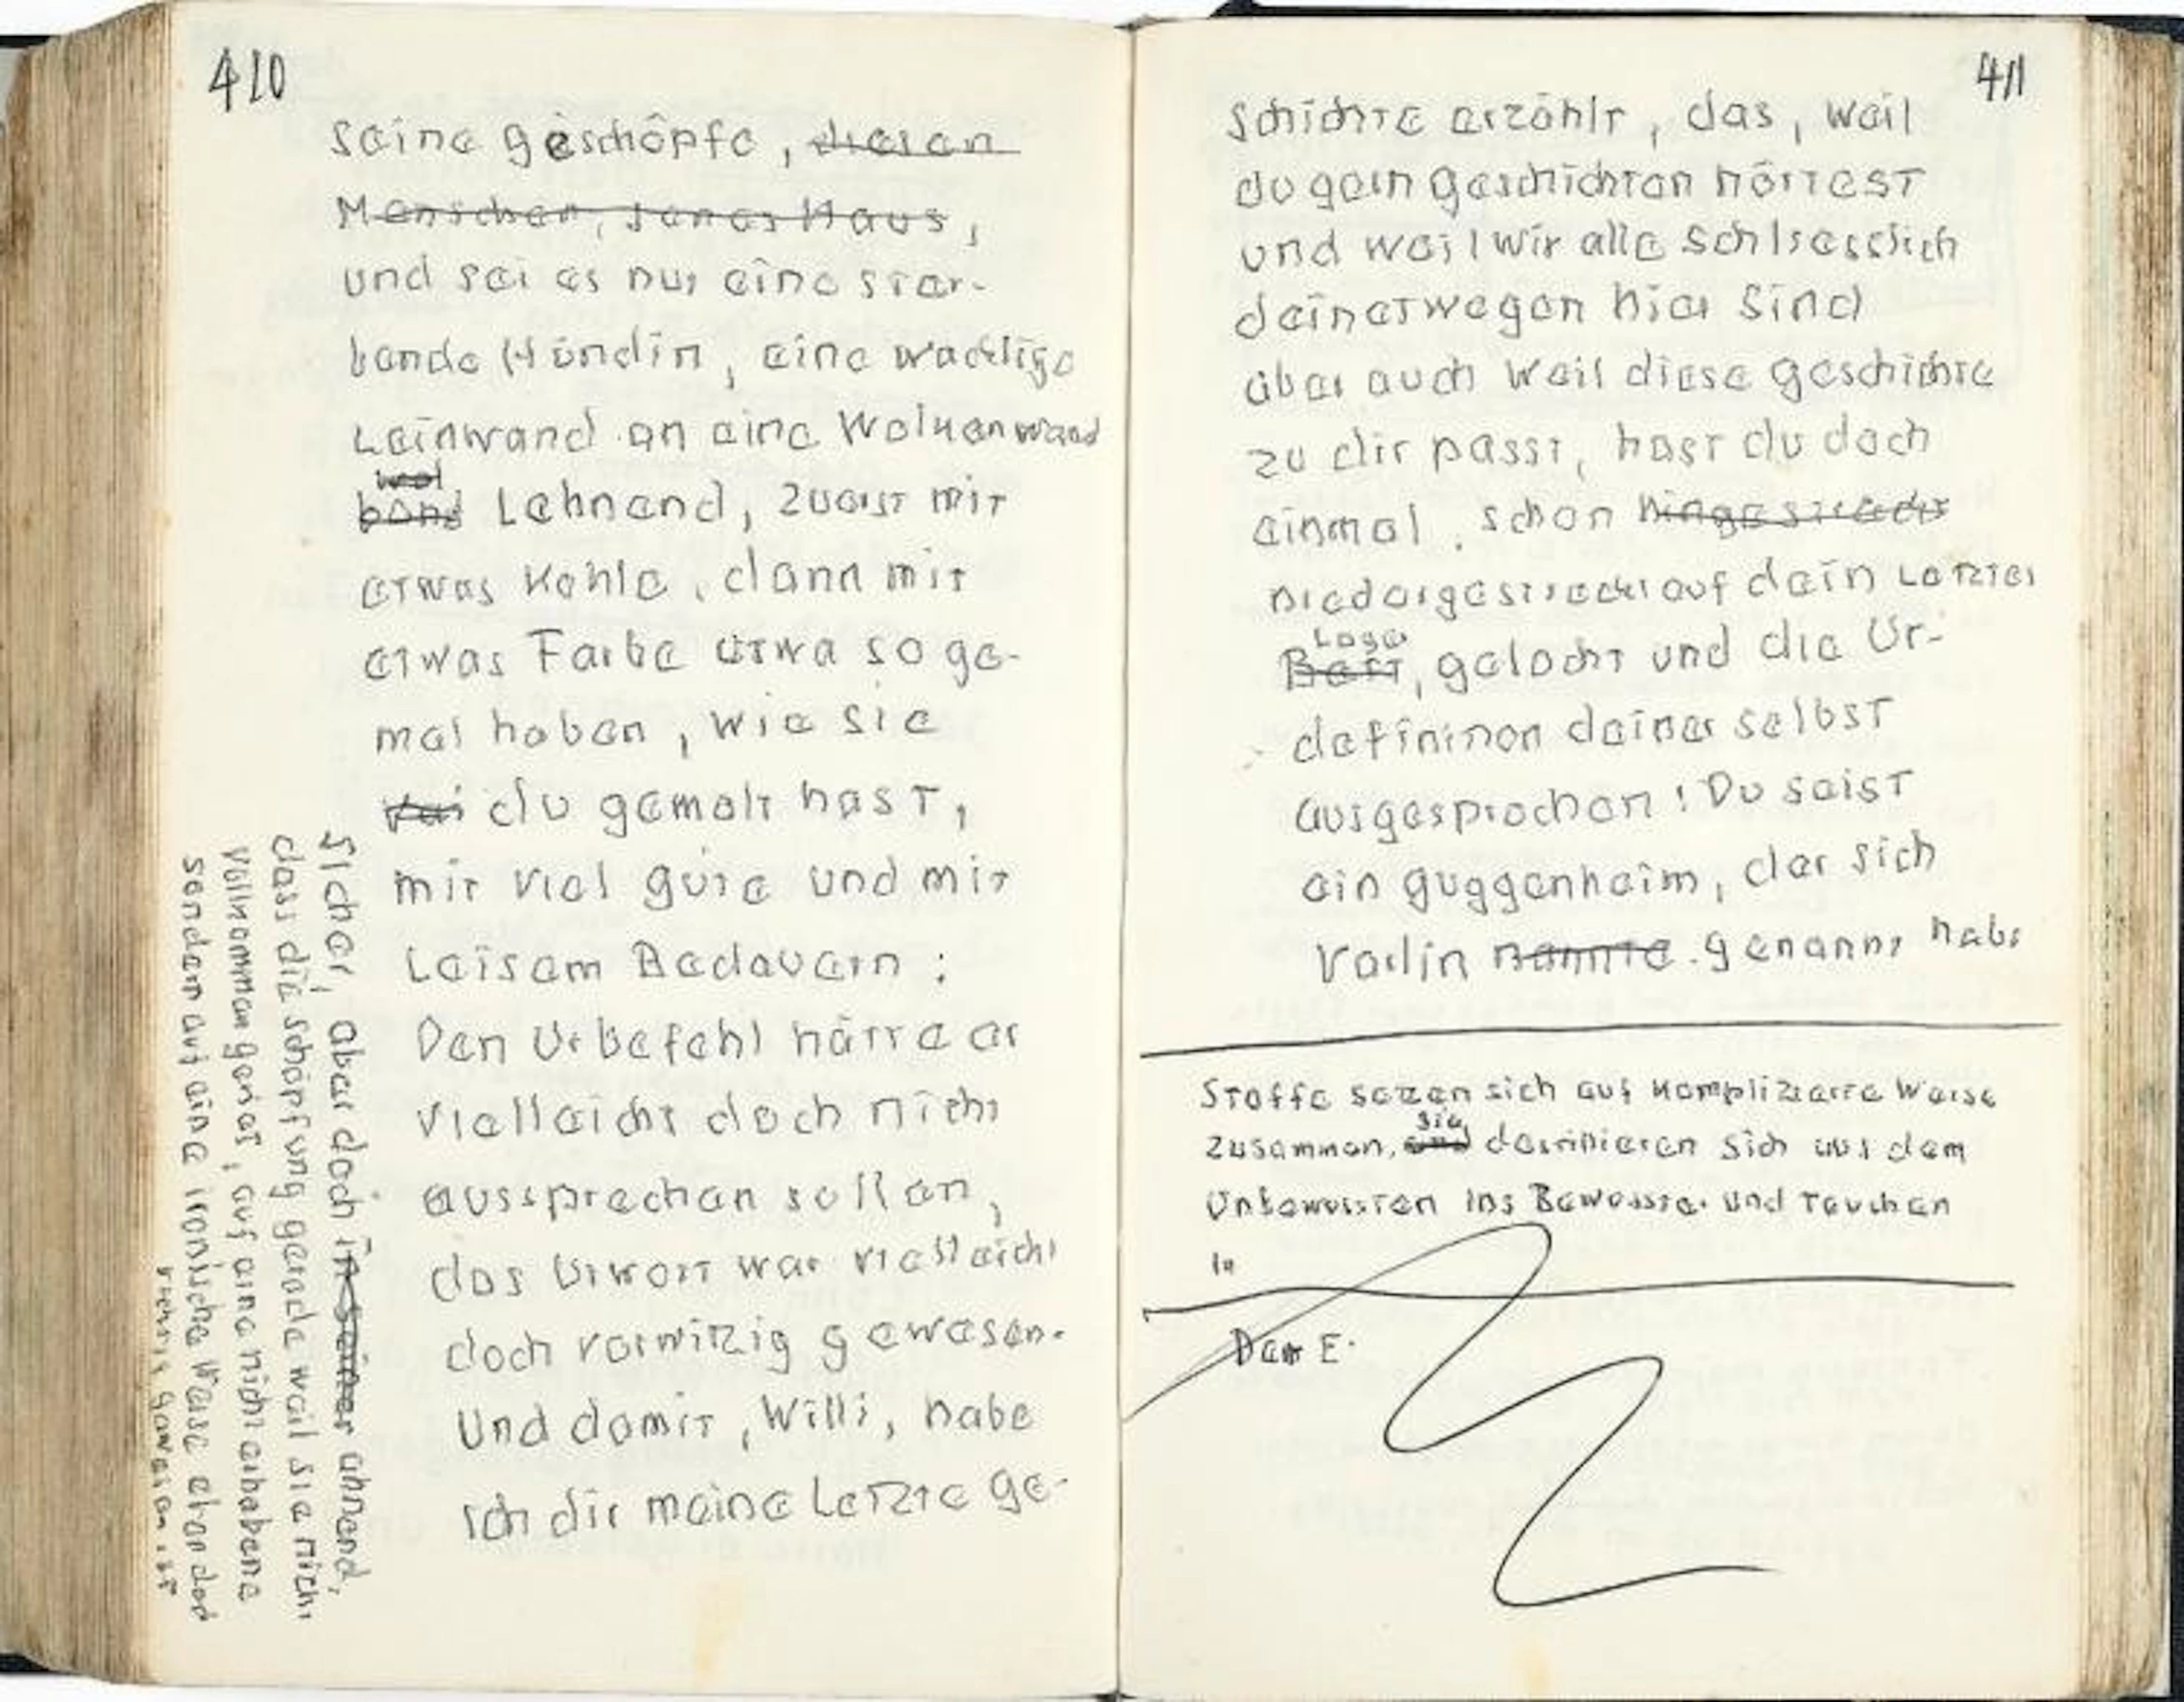 410
seine geschöpfe, diesen
Menschen, Jenes Haus,
und sei es nur eine ster-
bende Hündin, eine wacklige
Leinwand an eine Wolkenwand
Lehnend, zuerst mit
etwas Kohle, dann mit
etwas Farbe etwa so ge-
mal haben, wie sie
du gemalt hast,
mit viel güte und mit
Leisem Bedauern:
Den Urbefehl hätte er
vielleicht doch nicht
aussprechen sollen,
das Urwort war vielleicht
doch vorwitzig gewesen.
Und damit, Willi, habe
ich dir meine Letzte ge-
sicher, aber doch in seiner ahnend,
dass die schöpfung gerade weil sie nicht
vollkommen geriet, auf eine nicht erhabene
sondern auf eine ironische Weise eben doch
gewesen ist
411
schichte erzählt, das, weil
du gern geschichten hörtest
und weil wir alle schliesslich
deinetwegen hier sind
aber auch weil diese geschichte
zu dir passt, hast du doch
einmal, schon hingestreckt
niedergestreckt auf dein Letztes
Lager
Bett, gelacht und die Ur-
definition deiner selbst
ausgesprochen: Du seist
ein guggenheim, der sich
Varlin nannte. genannt habe
Stoffe setzen sich auf komplizierte Weise
sie
zusammen, und destillieren sich aus dem
Unbewussten ins Bewusste. und tauchen
in
Der E.